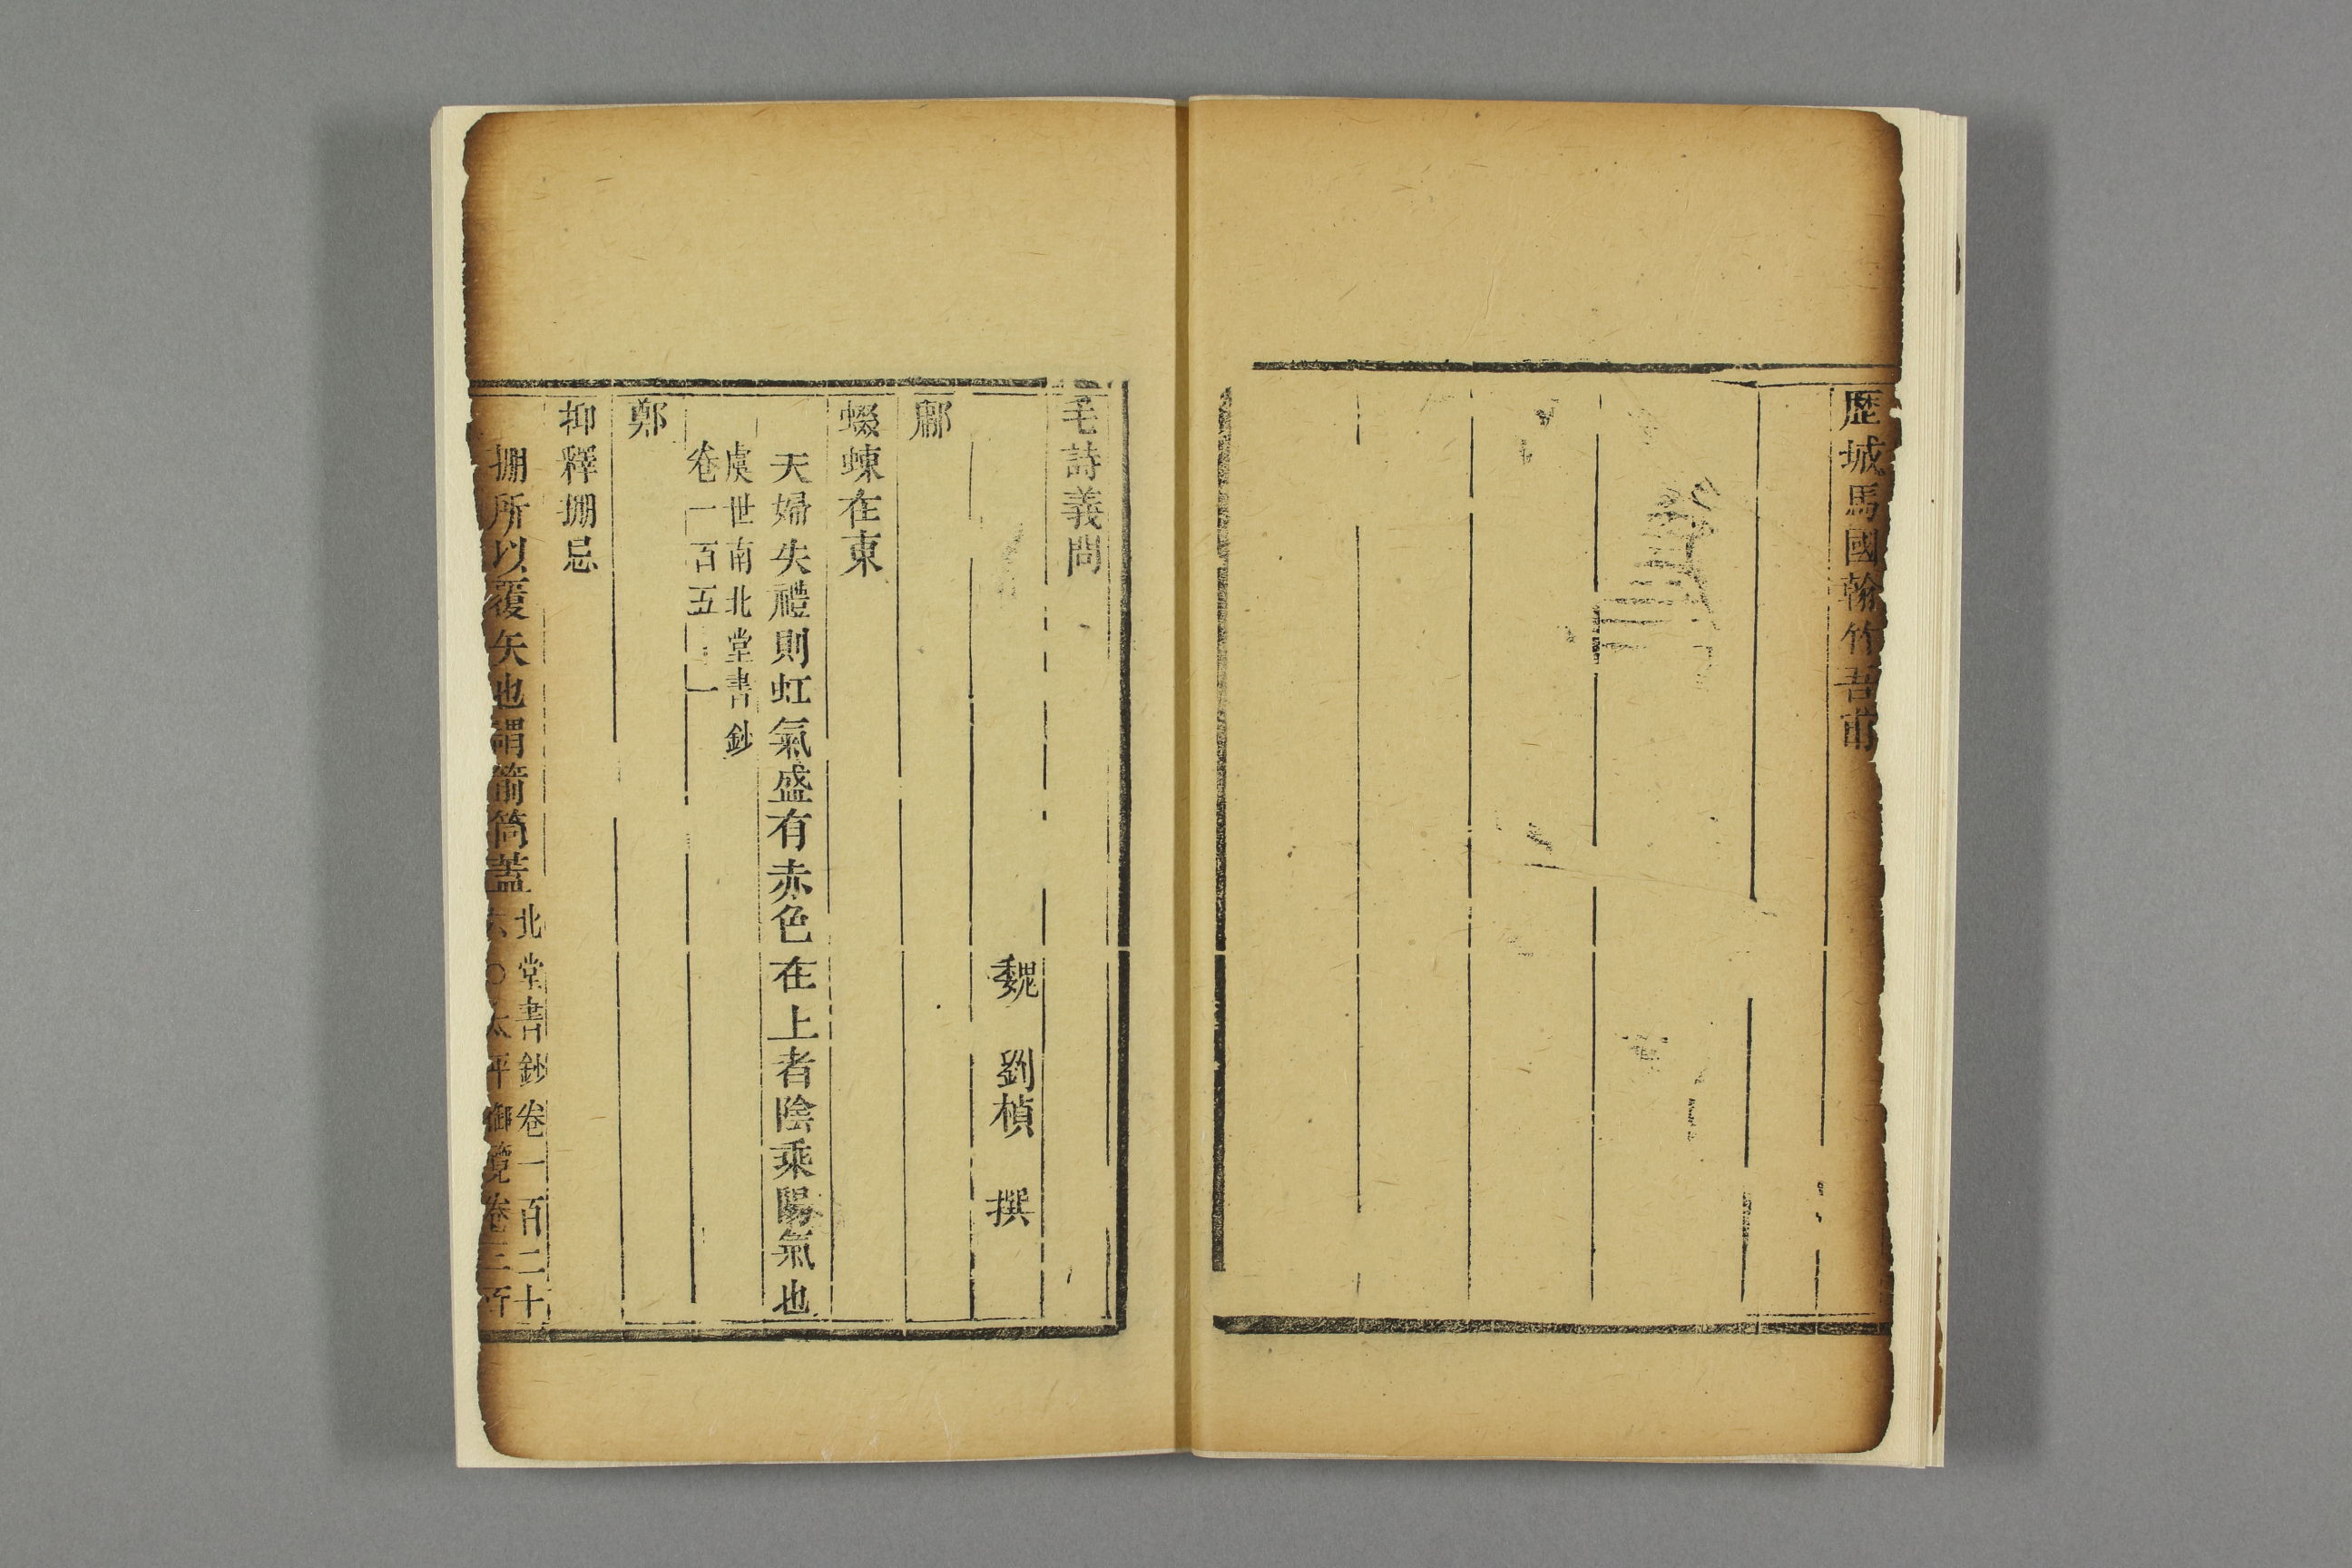 歴城馬國翰竹吾甫
毛詩義問
魏　劉楨　撰
鄘
蝃蝀在東
天婦失禮則虹氣盛有赤色在上者陰乘陽氣也
虞世南北堂書鈔
卷一百五十一
鄭
抑釋掤忌
掤所以覆矢也謂箭筩蓋
北堂書鈔卷一百二十
六〇太平御覽卷三百